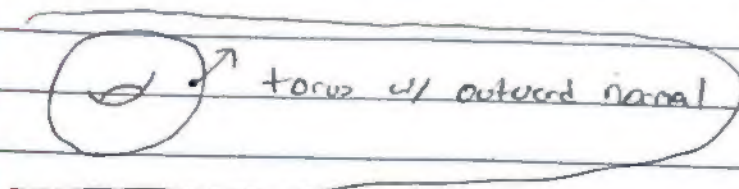 torus w/ outward normal